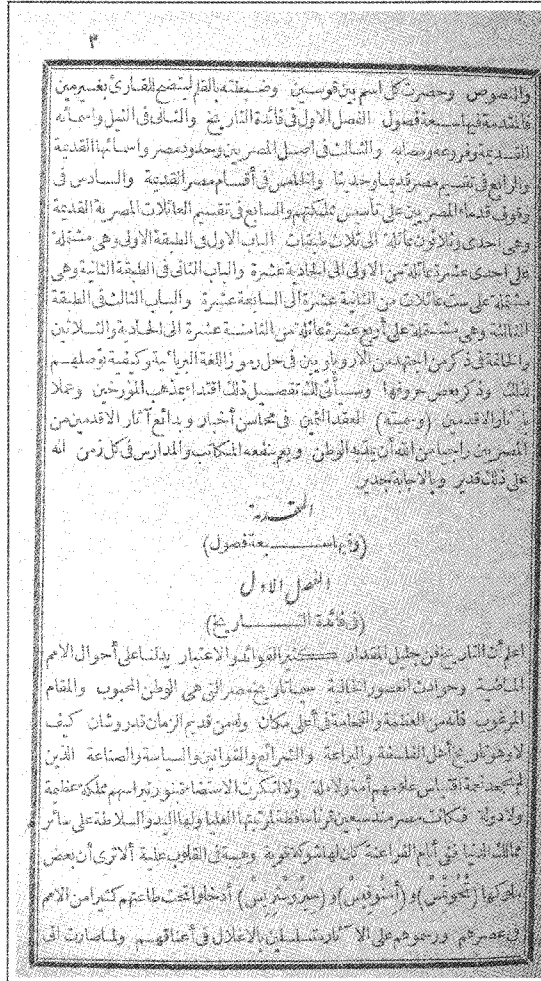 ٣
والنصوص وحصرت كل اسم بين قوسين وضبطته بالقلم ليتضح للقارئ بغير مين
فالمقدمة فيها سبعة فصول الفصل الاول فى فائدة التاريخ والثانى فى النيل واسمائه
القديمة وفروعه ومصابه والثالث فى اصل المصريين وحدود مصر واسمائها القديمة
والرابع فى تقسيم مصر قديما وحديثا والخامس فى أقسام مصر القديمة والسادس فى
وقوف قدماء المصريين على تأسيس مملكتهم والسابع فى تقسيم العائلات المصرية القديمة
وهى احدى وثلاثون عائلة الى ثلاث طبقات الباب الاول فى الطبقة الاولى وهى مشتملة
على احدى عشرة عائلة من الاولى الى الحادية عشرة والباب الثانى فى الطبقة الثانية وهى
مشتملة على ست عائلات من الثانية عشرة الى السابعة عشرة والباب الثالث فى الطبقة
الثالثة وهى مشتملة على أربع عشرة عائلة من الثامنة عشرة الى الحادية والثلاثين
والخاتمة فى ذكر من اجتهد من الاروباويين فى حل رموز اللغة البربائية وكيفية توصلهم
لذلك وذكر بعض حروفها وسيأتى لك تفصيل ذلك اقتداء بمذهب المؤرخين وعملا
بآثار الاقدمين (وسميته) العقد الثمين فى محاسن أخبار وبدائع آثار الاقدمين من
المصريين راجيا من الله أن يفيد الوطن ويعم بنفعه المكاتب والمدارس فى كل زمن انه
على ذلك قدير وبالاجابة جدير
المقدمة
(وفيها سبعة فصول)
الفصل الاول
(فى فائدة التاريخ)
اعلم أن التاريخ فن جليل المقدار كثير الفوائد والاعتبار يدلنا على أحوال الامم
الماضية وحوادث العصور الخالية سيما تاريخ مصر التى هى الوطن المحبوب والمقام
المرغوب فانه من العظمة والفخامة فى أعلى مكان وله من قديم الزمان قدر وشان كيف
لا وهو تاريخ أهل الفلسفة والبراعة والشرائع والقوانين والسياسة والصناعة الذين
لم يجحد نعمة اقتباس علومهم أمة ولا ملة ولا انكرت الاستضاءة بنور نبراسهم مملكة عظيمة
ولا دولة فكانت مصر منذ سبعين قرنا حافظة لمرتبتها العليا ولها اليد والسلاطة على سائر
ممالك الدنيا ففى أيام الفراعنة كان لها شوكة قوية وهيبة فى القلوب علية ألا ترى أن بعض
ملوكها (تُحُوتمِس) و (أمِنُوفِيس) و (سِيزُوسْتِريس) أدخلوا تحت طاعتهم كثيرا من الامم
فى عصرهم ورسموهم على الآثار متسلسلين بالاغلال فى أعناقهم ولما صارت الى